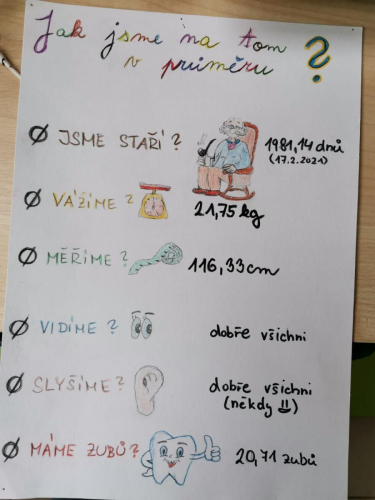 Jak jsme na tom
v průměru ?
Ø JSME STAŘÍ ? 1981,14 dnů
(17.2.2021)
Ø VÁŽÍME ? 21,75 kg
Ø MĚŘÍME ? 116,33 cm
Ø VIDÍME ? dobře všichni
Ø SLYŠÍME ? dobře všichni
(někdy =))
Ø MÁME ZUBŮ? 20,71 zubů